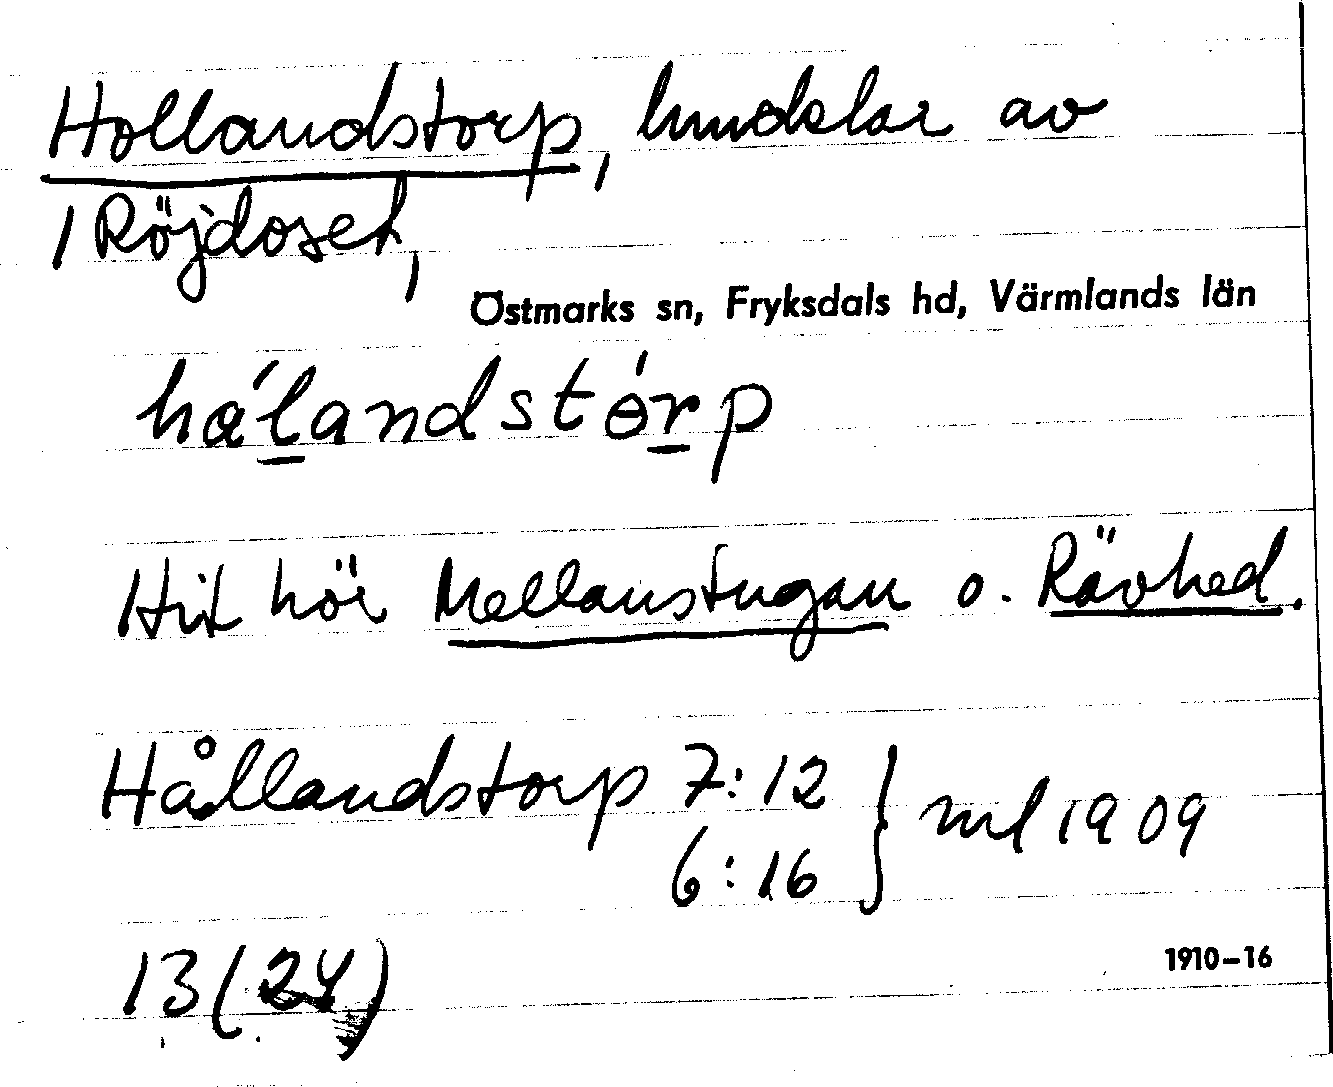 Hollandstorp, hmdelar av
1 Röjdoset,
Östmarks sn, Fryksdals hd, Värmlands län
hå´landstó̵rp
Hit hör Mellanstugan o. Rävhed.
Hållandstorp 7:12 } ml 1909
6:16
13 (24)
1910–16